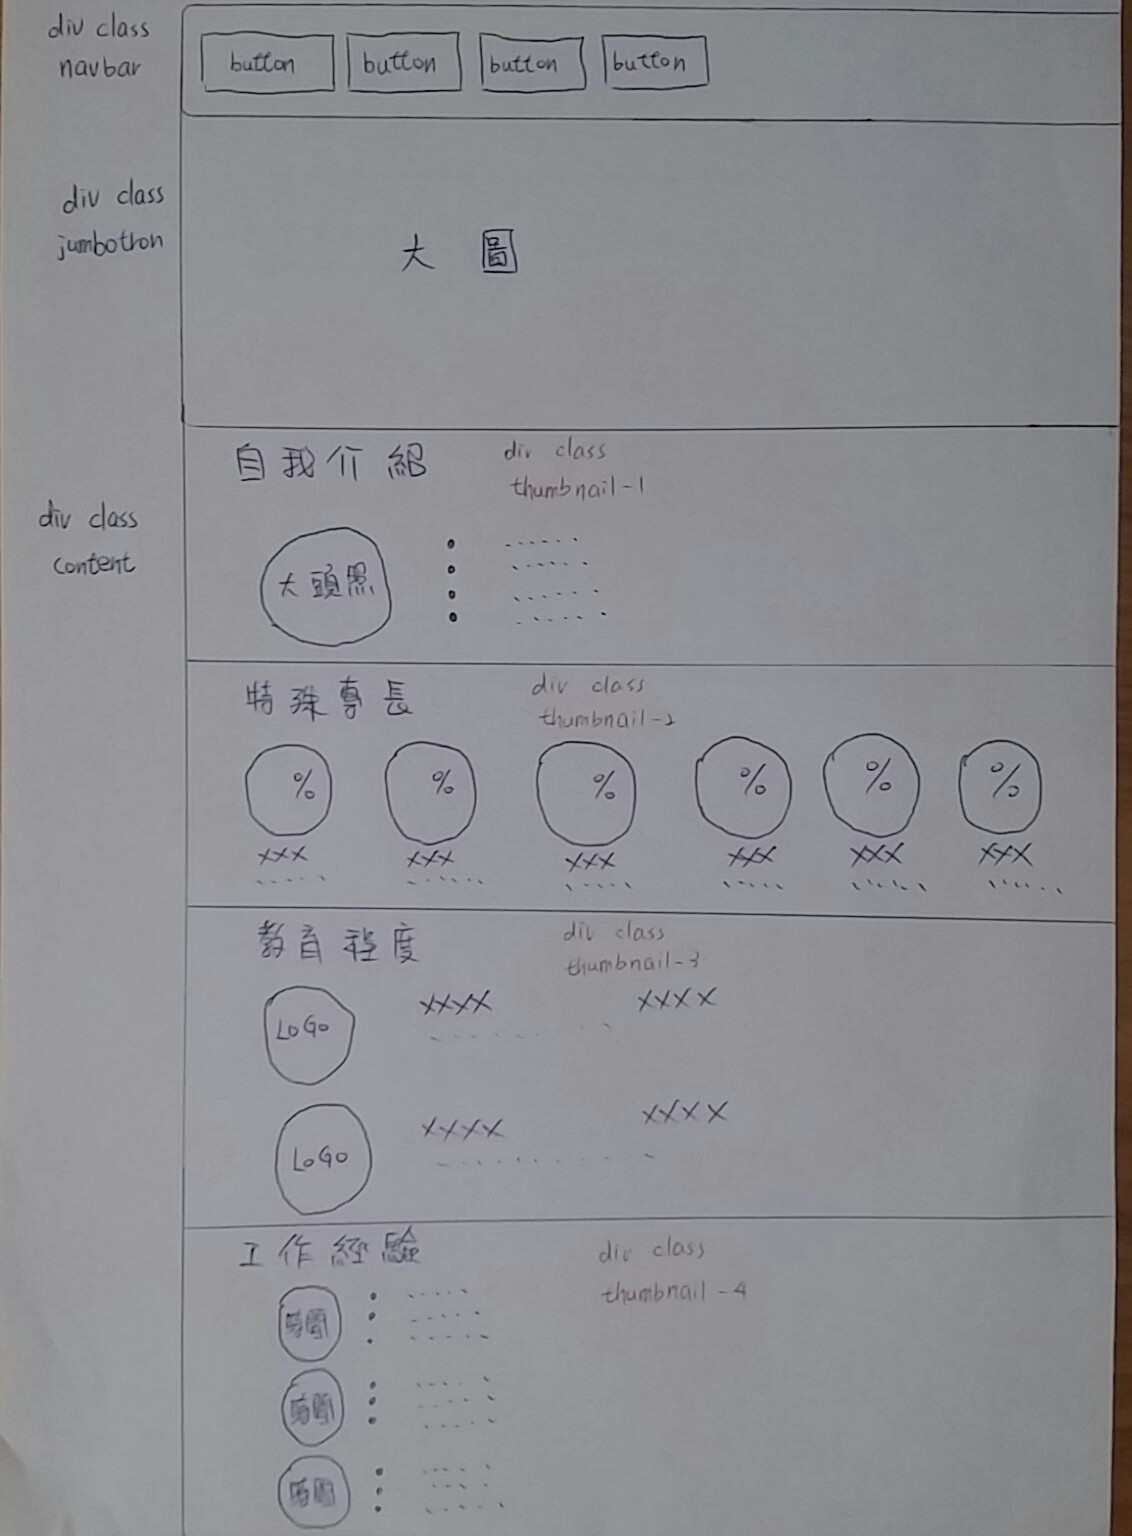 div class
navbar
button button button button
div class
jumbotron
大 圖
自我介紹
div class
thumbnail-1
div class
content
大頭照
特殊專長
div class
thumbnail-2
% % % % % %
xxx xxx xxx xxx xxx xxx
教育程度
div class
thumbnail-3
LOGO
xxxx xxxx
LOGO
xxxx xxxx
工作經驗
div class
thumbnail-4
時間
時間
時間